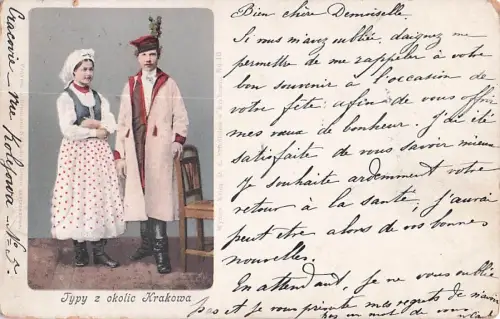 Cracovie, rue Kolejowa No 5.
Typy z okolic Krakowa
Bien chère Demoiselle.
Si vous m'avez oubliée, daignez me
permettre de me rappeler à votre
bon souvenir à l'occasion de
votre fête afin de vous offrir
mes vœux de bonheur. J'ai été
satisfaite de vous savoir mieux
je souhaite ardemment votre
retour à la santé, j'aurai
peut être alors de vos bonnes
nouvelles.
En attendant, je ne vous oublie
pas et je vous présente mes regrets de n'avoir
pas un mot de vous